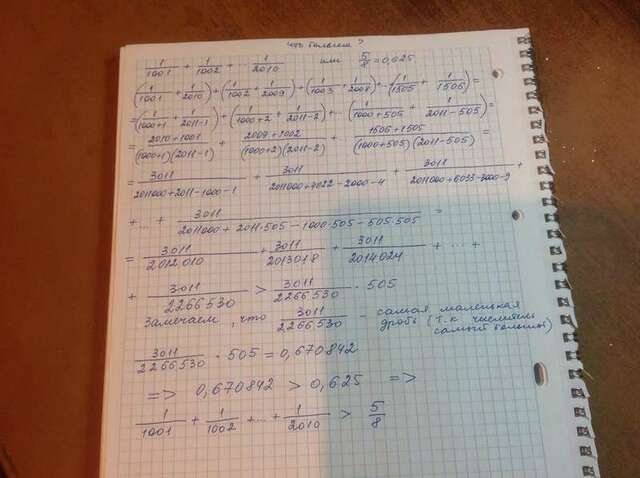 Что больше?
1/1001 + 1/1002 + ... 1/2010 или 5/8 = 0,625
(1/1001 + 1/2010) + (1/1002 + 1/2009) + (1/1003 + 1/2008) + ... (1/1505 + 1/1506) =
= (1/1000+1 + 1/2011-1) + (1/1000+2 + 1/2011-2) + ... (1/1000+505 + 1/2011-505) =
= 2010+1001/(1000+1)(2011-1) + 2009+1002/(1000+2)(2011-2) + ... 1506+1505/(1000+505)(2011-505) =
= 3011/2011000+2011-1000-1 + 3011/2011000+4022-2000-4 + 3011/2011000+6033-3000-9 +
+ ... + 3011/2011000+2011·505-1000·505-505·505 =
= 3011/2012010 + 3011/2013018 + 3011/2014024 + ... +
+ 3011/2266530 > 3011/2266530 · 505
Замечаем, что 3011/2266530 - самая маленькая
дробь (т.к числитель
самый большой)
3011/2266530 · 505 = 0,670842
=> 0,670842 > 0,625 =>
1/1001 + 1/1002 + ... + 1/2010 > 5/8